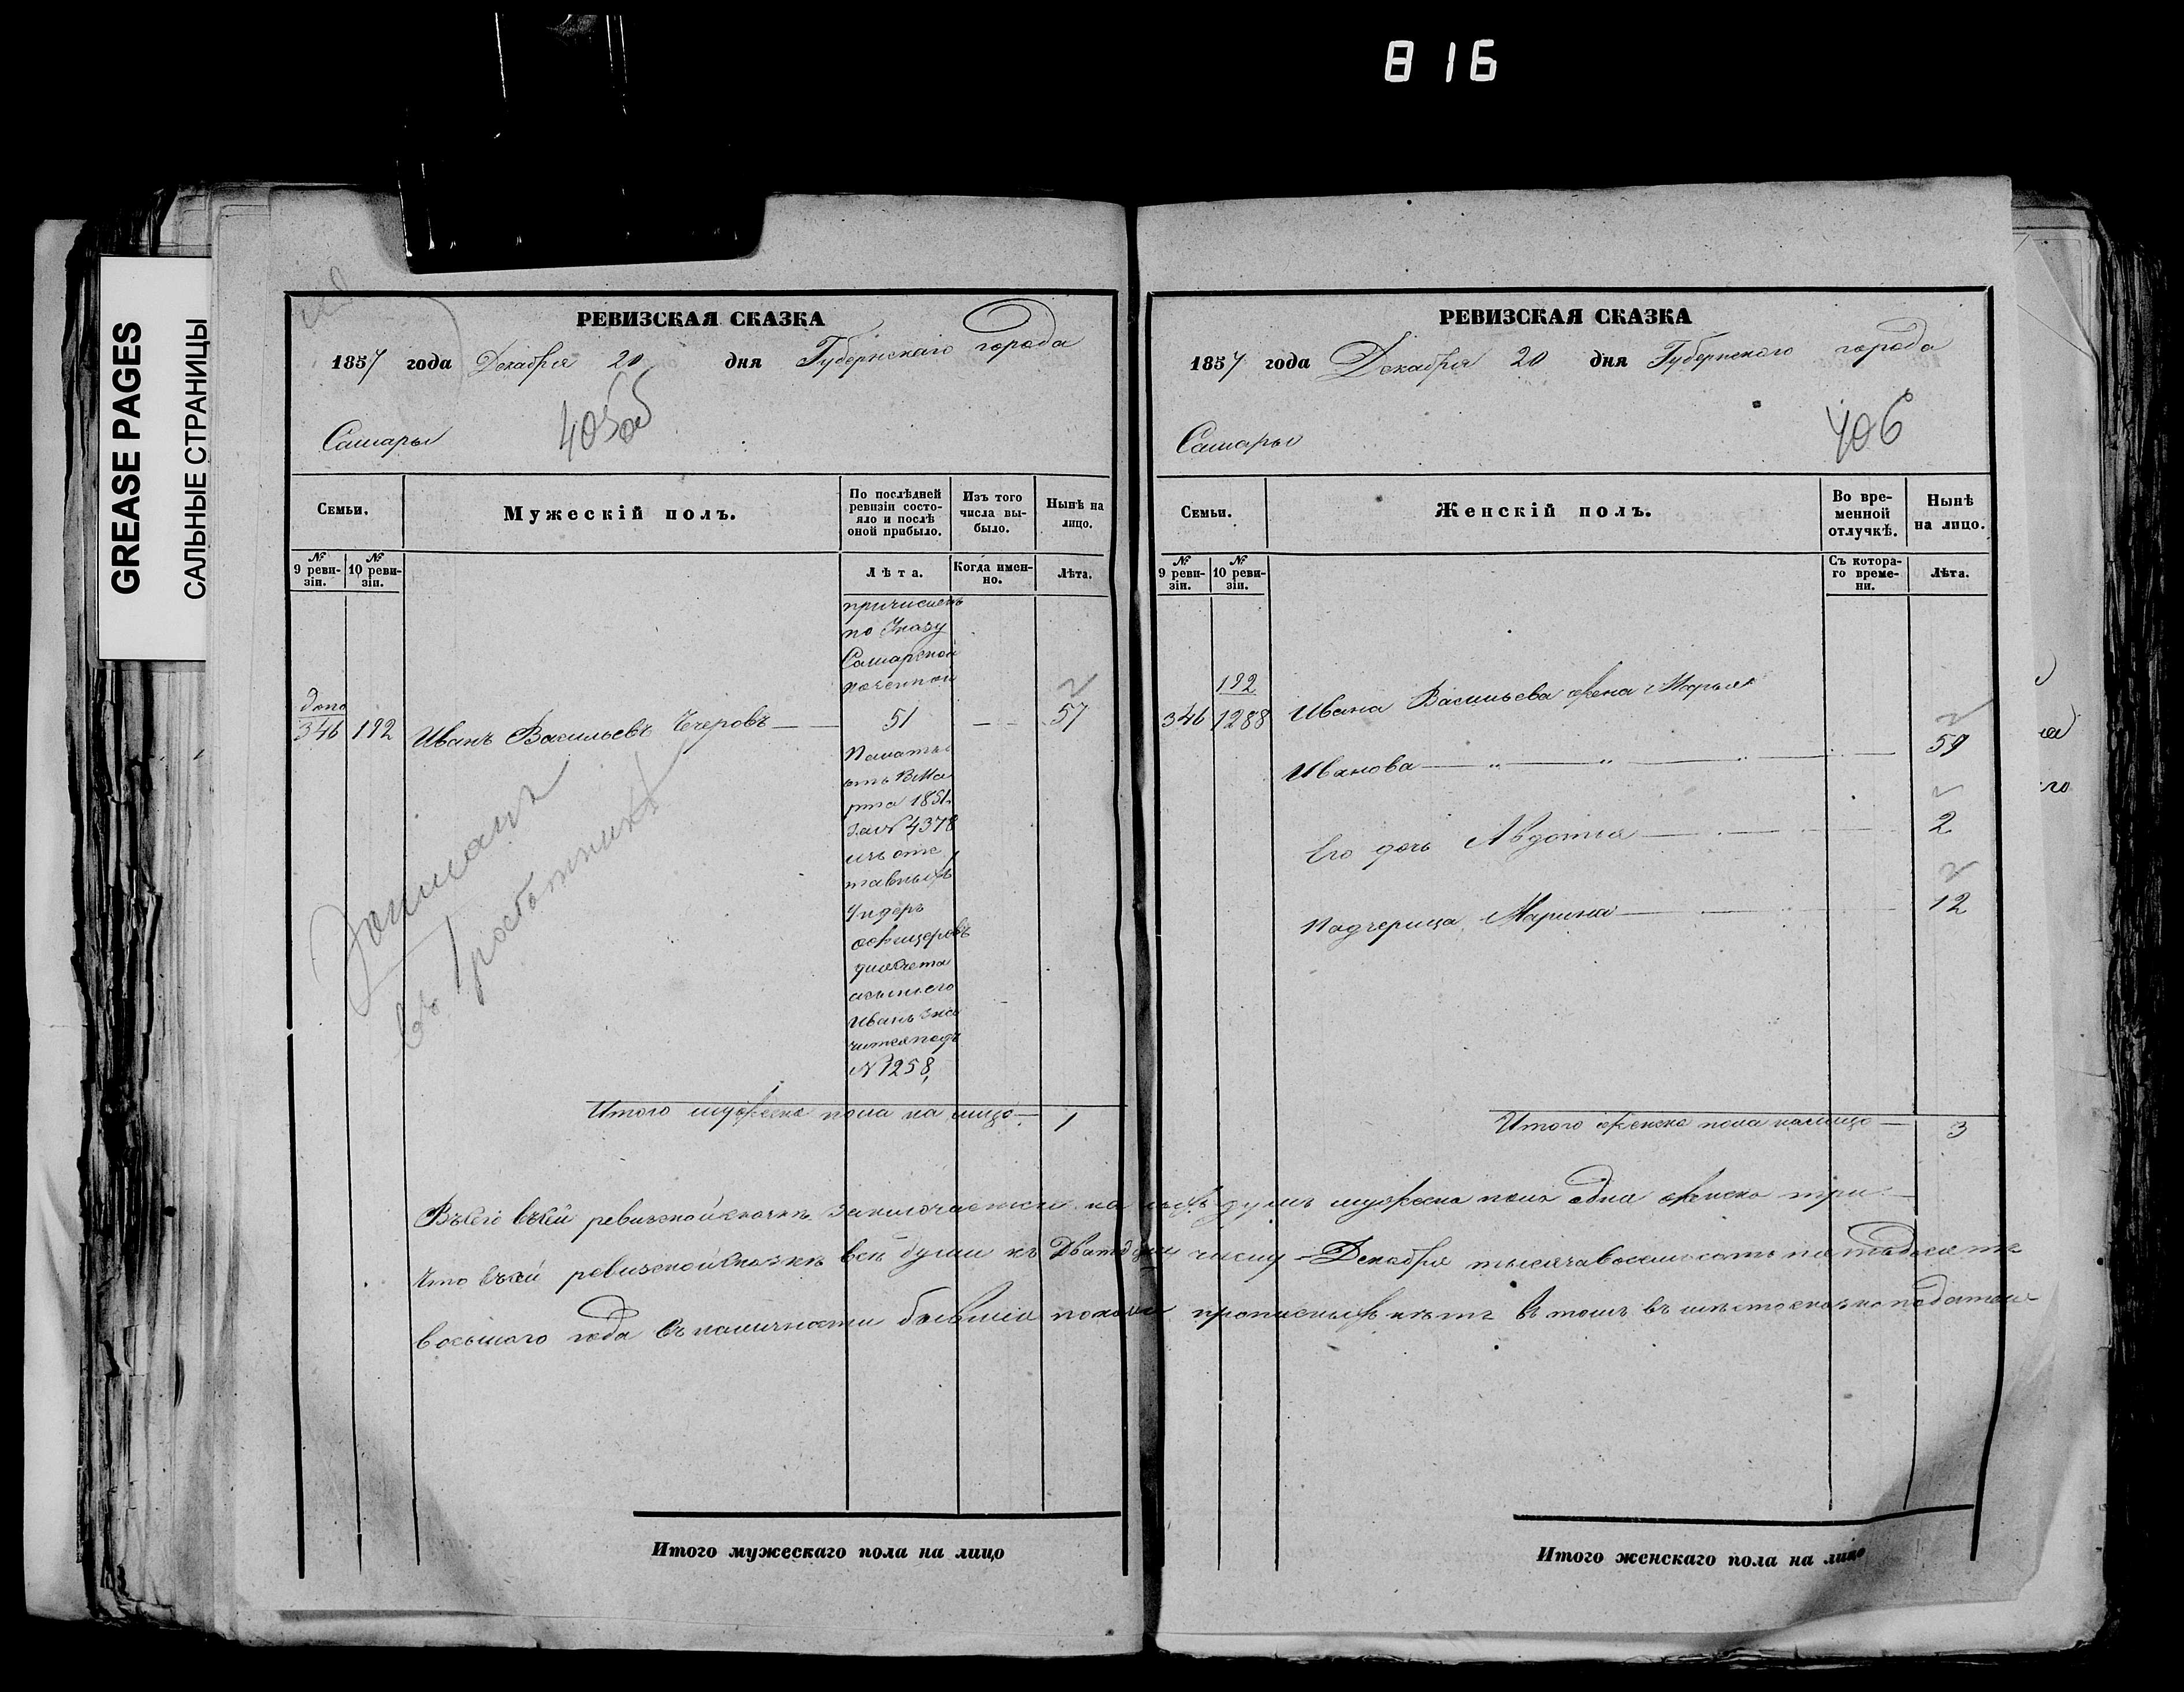 816
GREASE PAGES
САЛЬНЫЕ СТРАНИЦЫ
РЕВИЗСКАЯ СКАЗКА
1857 года Декабря 20 дня Губернскаго города
Самары
405об
Семьи.
Мужескій полъ.
По послѣдней ревизіи состояло и послѣ оной прибыло.
Изъ того числа выбыло.
Нынѣ на лицо.
№ 9 ревизіи.
№ 10 ревизіи.
Лѣта.
Когда именно.
Лѣта.
причисленъ
по Указу
Самарской
казенной
допо
346 192 Иванъ Васильевъ Чечеровъ 51 — 57
Палаты
отъ 13 Ма
рта 1851
за № 4378
изъ отс
тавныхъ
Ундеръ
офицеровъ
для счета
Иванъ зна
чится подъ
№ 1258
Записанъ
въ
Итого мужеска пола на лицо — 1
РЕВИЗСКАЯ СКАЗКА
1857 года Декабря 20 дня Губернскаго города
Самары
406
Семьи.
Женскій полъ.
Во временной отлучкѣ.
Нынѣ на лицо.
№ 9 ревизіи.
№ 10 ревизіи.
Съ котораго времени.
Лѣта.
192
346 1288 Ивана Васильева жена Марья
Иванова — „ — „ — 59
Его дочь Авдотья — 2
Падчерица Марина — 12
Итого женска пола налицо — 3
ревизской сказкѣ заключается на лицо душъ мужеска пола одна женска три
Что въ сей ревизской сказкѣ всѣ души къ Двадцатому числу Декабря тысяча восемьсотъ пятьдесятъ
восьмаго года въ наличности бывшія показаны прописныхъ нѣтъ въ томъ
Итого мужескаго пола на лицо
Итого женскаго пола на лицо